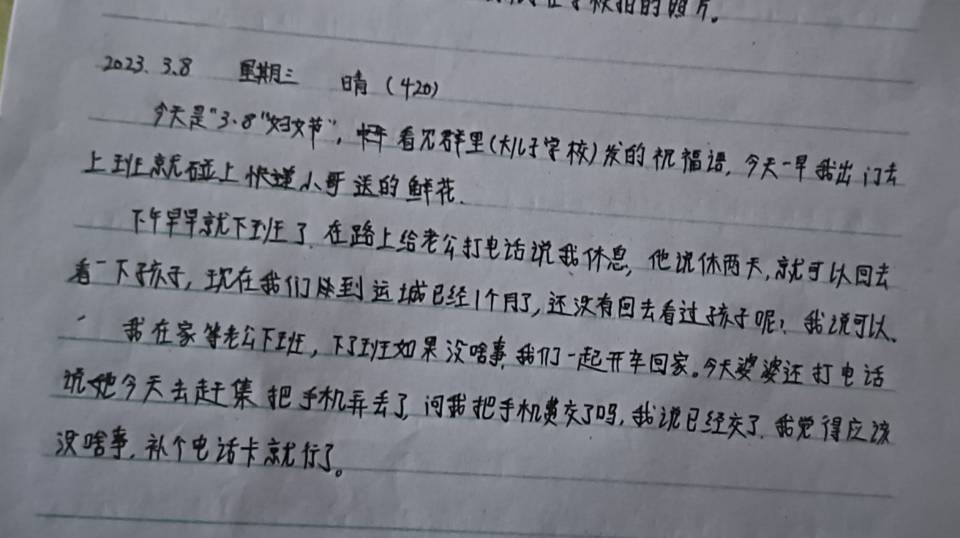 在学校拍的照片。
2023.3.8 星期三 晴(420)
今天是"3.8"妇女节",看见群里(大儿子学校)发的祝福语,今天一早我出门去
上班就碰上快递小哥送的鲜花.
下午早早就下班了.在路上给老公打电话说我休息,他说休两天,就可以回去
看一下孩子,现在我们来到运城已经1个月了,还没有回去看过孩子呢,我说可以.
我在家等老公下班,下了班如果没啥事,我们一起开车回家。今天婆婆还打电话
说她今天去赶集把手机弄丢了,问我把手机费交了吗,我说已经交了.我觉得应该
没啥事,补个电话卡就行了。